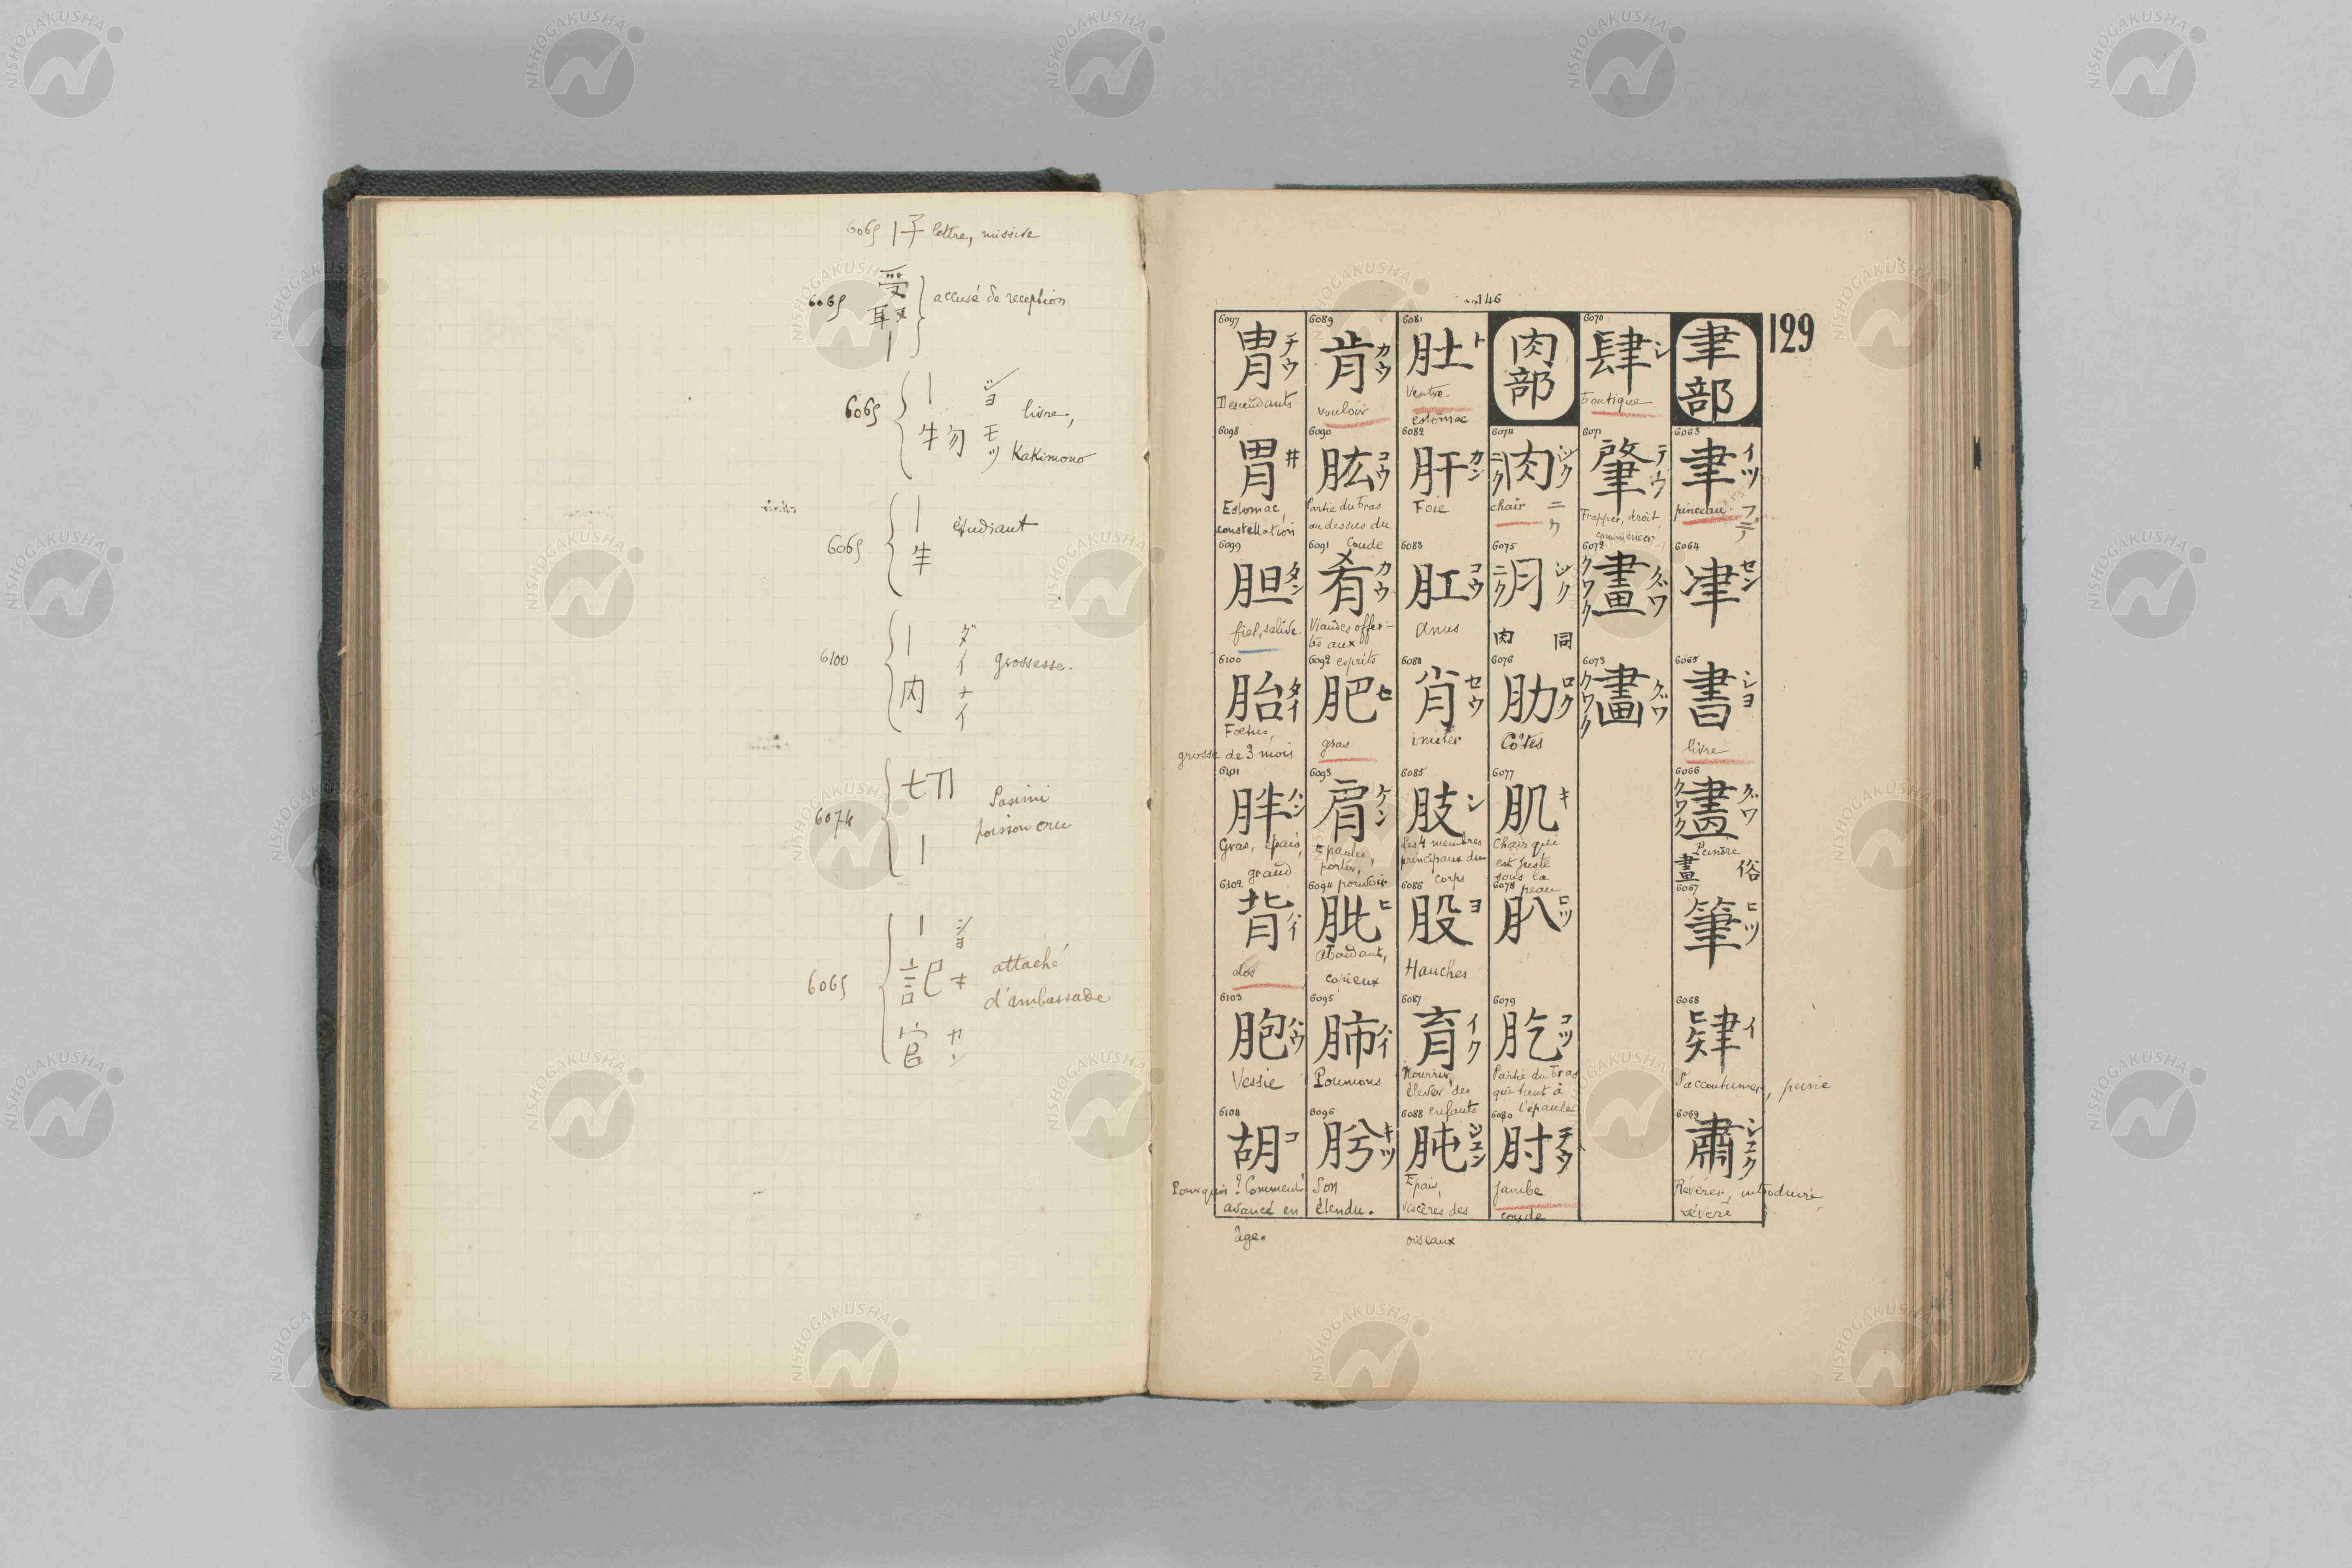 6065 丨子 lettre, missive
6065 受取丨 accusé de reception
6065 丨牛勿 ショモツ livre,
Kakimono
6065 丨生 étudiant
6100 丨内 ダイナイ grossesse.
6074 切丨 Sasimi
poisson cru
6065 丨記官 ショキカン attaché
d'ambassade
146
129
聿部
6063 聿 イツ
pinceau フデ
6064 津 セン
6065 書 シヨ
livre
6066 畫 グワ クワク
Peindre
畫 俗
6067 筆 ヒツ
6068 肄 イ
S'accoutumer, peine
6069 肅 シユク
Révérer, introduire
sévère
6070 肆 シ
Boutique
6071 肇 テウ
Frapper, droit,
commencer
6072 畫 グワ クワク
6073 畵 グワ クワク
肉部
6074 肉 ジク ニク
chair ニク
6075 月 ジク ニク
肉 同
6076 肋 ロク
Côtes
6077 肌 キ
Chair qui
est juste
sous la
peau
6078 肍 ロツ
6079 肐 コツ
Partie du bras
qui tient à
l'épaule
6080 肘 チウ
Jambe
coude
6081 肚 ト
Ventre
estomac
6082 肝 カン
Foie
6083 肛 コウ
Anus
6084 肖 セウ
imiter
6085 肢 シ
Les 4 membres
principaux du
corps
6086 股 ヨ
Hauches
6087 育 イク
Nourrir,
élever des
enfants
6088 肫 ジユン
Epais,
viscères des
oiseaux
6089 肯 カウ
vouloir
6090 肱 コウ
Partie du bras
au dessus du
Coude
6091 肴 カウ
Viandes offer-
tes aux
esprits
6092 肥 ヒ
gras
6093 肩 ケン
Epaule,
porter,
pouvoir
6094 肶 ヒ
Abondant,
copieux
6095 肺 ハイ
Poumons
6096 肹 キツ
Son
étendu.
6097 冑 チウ
Descendants
6098 胃 井
Estomac,
constellation
6099 胆 タン
fiel, salive
6100 胎 タイ
Fœtus,
grosse de 3 mois
6101 胖 ハン
Gras, épais,
grand
6102 背 ハイ
dos
6103 胞 ハウ
Vessie
6104 胡 コ
Pourquoi ? Comment
avancé en
âge.